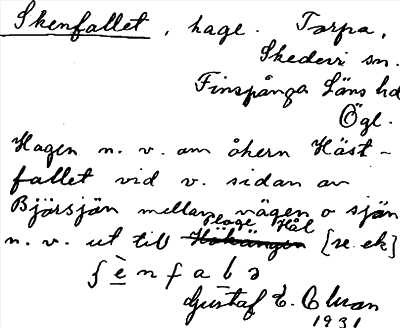 Skenfallet, hage. Torpa,
Skedevi sn.
Finspånga Läns hd
Ögl.
Hagen n. v. om åkern Häst-
fallet vid v. sidan av
Björsjön mellan vägen o sjön
n. v. ut till Ploge Hål [se ek]
ʃ è n f a l ə
Gustaf E.
1931